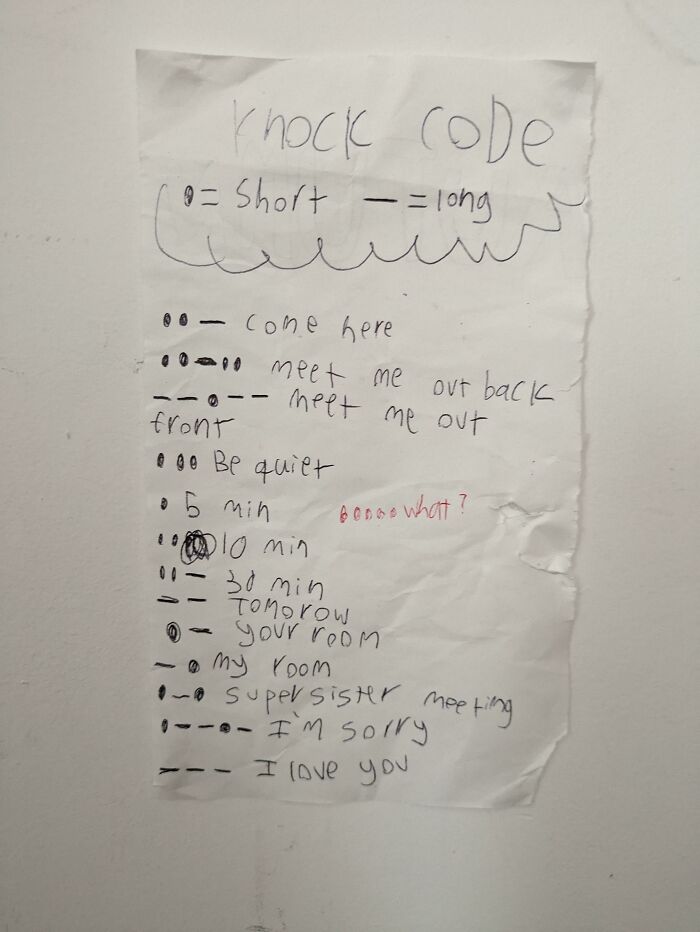 Knock coDe
•= Short —=long
••— come here
••—•• meet me out back
——•—— meet me out
front
••• Be quiet
• 5 min •••••what?
•• 10 min
••— 30 min
—— Tomorow
•— your room
—• my room
•—• supersister meeting
•——•— I'm sorry
——— I love you